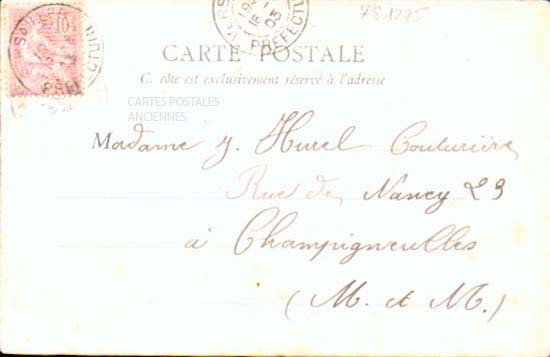 781295
10
PREFECTU
CARTE POSTALE
C. côte est exclusivement réservé à l'adresse
CARTES POSTALES
ANCIENNES
Madame J. Hurel Couturière
Rue de Nancy 23
à Champigneulles
(M. et M.)